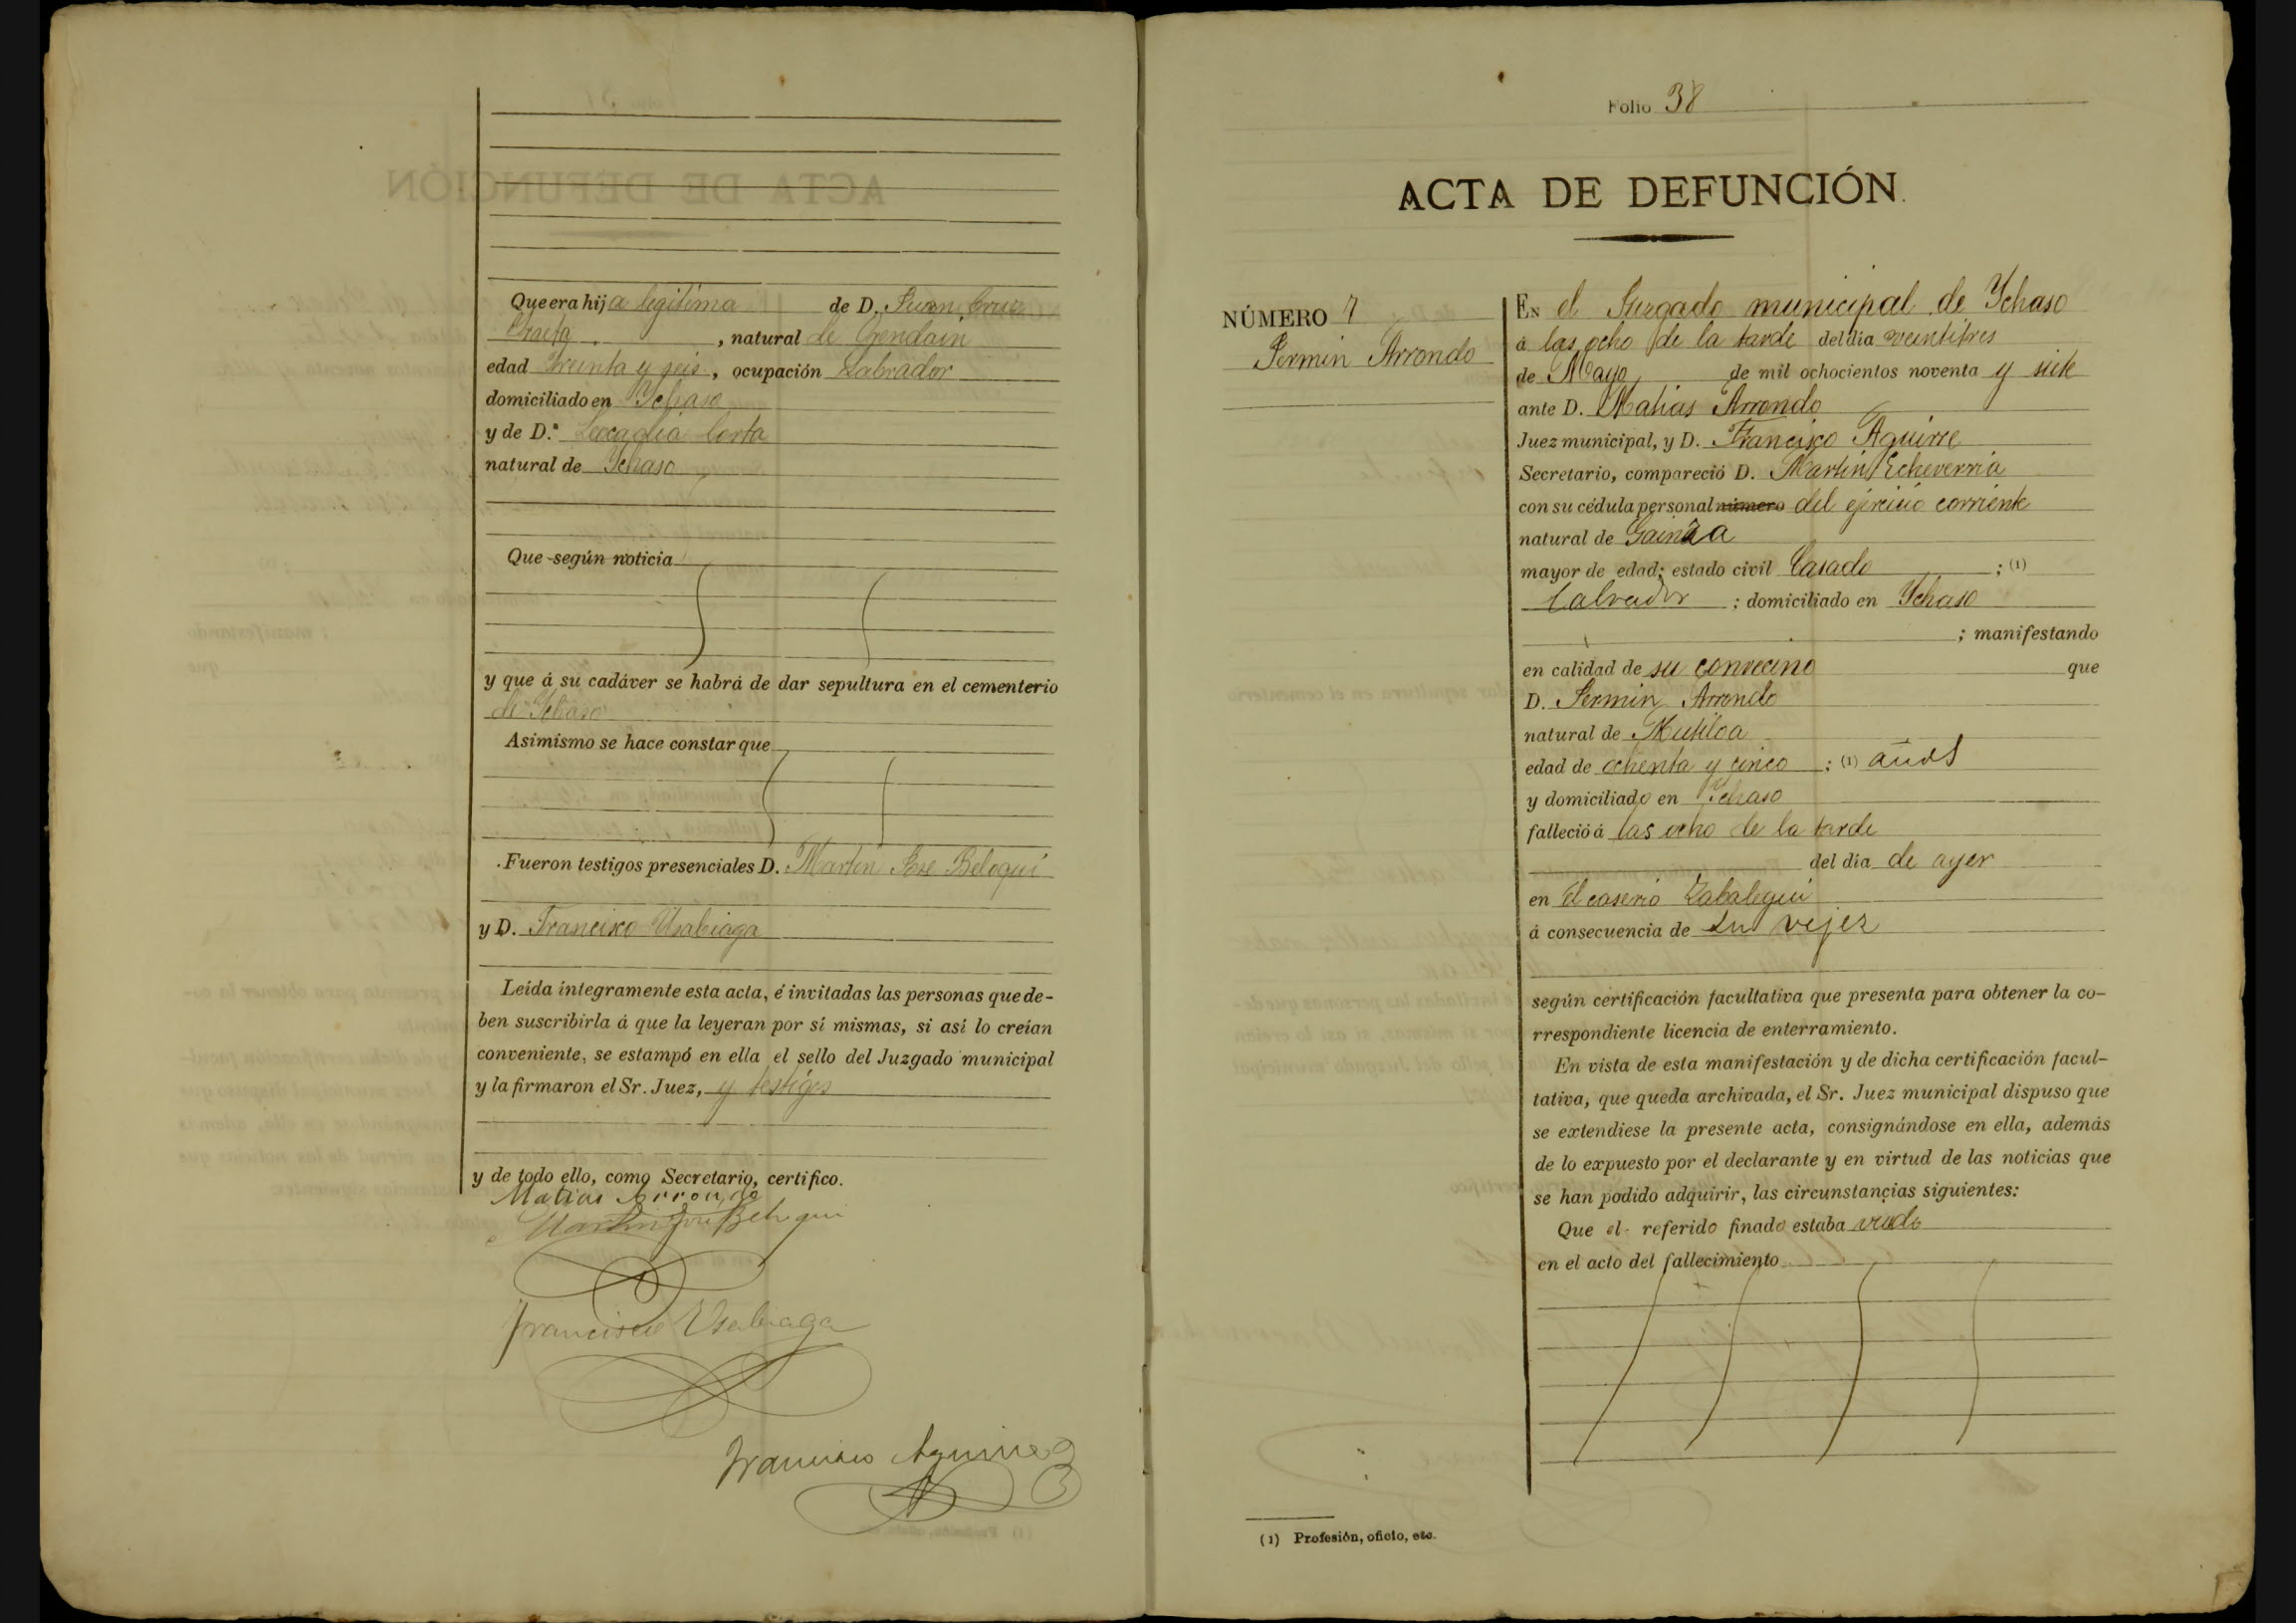 Que era hija legitima de D. Juan Cruz
, natural de Gendain
edad treinta y seis, ocupación Labrador
domiciliado en Ychaso
y de D.ª Leocadia Corta
natural de Ychaso
Que según noticia
y que á su cadáver se habrá de dar sepultura en el cementerio
de Ychaso
Asimismo se hace constar que
Fueron testigos presenciales D. Martin José Beloqui
y D. Francisco Usabiaga
Leída íntegramente esta acta, é invitadas las personas que de-
ben suscribirla á que la leyeran por sí mismas, si así lo creían
conveniente, se estampó en ella el sello del Juzgado municipal
y la firmaron el Sr. Juez, y testigos
y de todo ello, como Secretario, certifico.
Matias Arrondo
Martin José Beloqui
Francisco Usabiaga
Francisco Aguirre
Folio 38
ACTA DE DEFUNCIÓN.
NÚMERO 7
Fermin Arrondo
EN el Juzgado municipal de Ychaso
á las ocho de la tarde del día veintitres
de Mayo de mil ochocientos noventa y siete
ante D. Matias Arrondo
Juez municipal, y D. Francisco Aguirre
Secretario, compareció D. Martin Echeverria
con su cédula personal número del ejercicio corriente
natural de Gainza
mayor de edad; estado civil Casado ; (1)
Labrador ; domiciliado en Ychaso
; manifestando
en calidad de su convecino que
D. Fermin Arrondo
natural de Mutiloa
edad de ochenta y cinco ; (1) años
y domiciliado en Ychaso
falleció á las ocho de la tarde
del día de ayer
en El caserio Zabalegui
á consecuencia de su vejez
según certificación facultativa que presenta para obtener la co-
rrespondiente licencia de enterramiento.
En vista de esta manifestación y de dicha certificación facul-
tativa, que queda archivada, el Sr. Juez municipal dispuso que
se extendiese la presente acta, consignándose en ella, además
de lo expuesto por el declarante y en virtud de las noticias que
se han podido adquirir, las circunstancias siguientes:
Que el referido finado estaba viudo
en el acto del fallecimiento
(1) Profesión, oficio, etc.